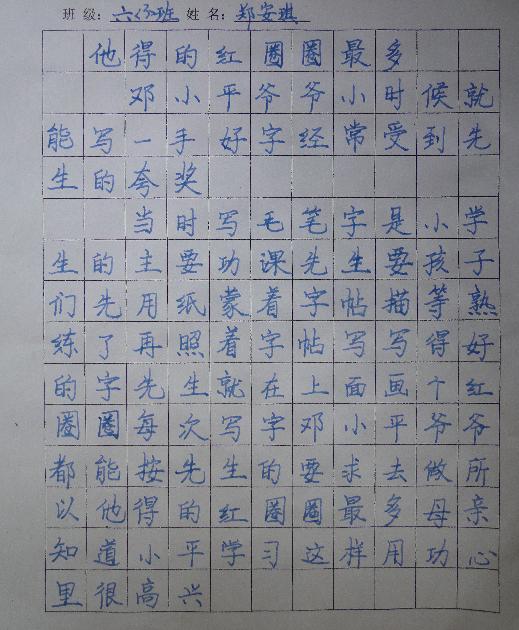 班级：六(3)班 姓名：郑安琪
他得的红圈圈最多
邓小平爷爷小时候就
能写一手好字经常受到先
生的夸奖
当时写毛笔字是小学
生的主要功课先生要孩子
们先用纸蒙着字帖描等熟
练了再照着字帖写写得好
的字先生就在上面画个红
圈圈每次写字邓小平爷爷
都能按先生的要求去做所
以他得的红圈圈最多母亲
知道小平学习这样用功心
里很高兴